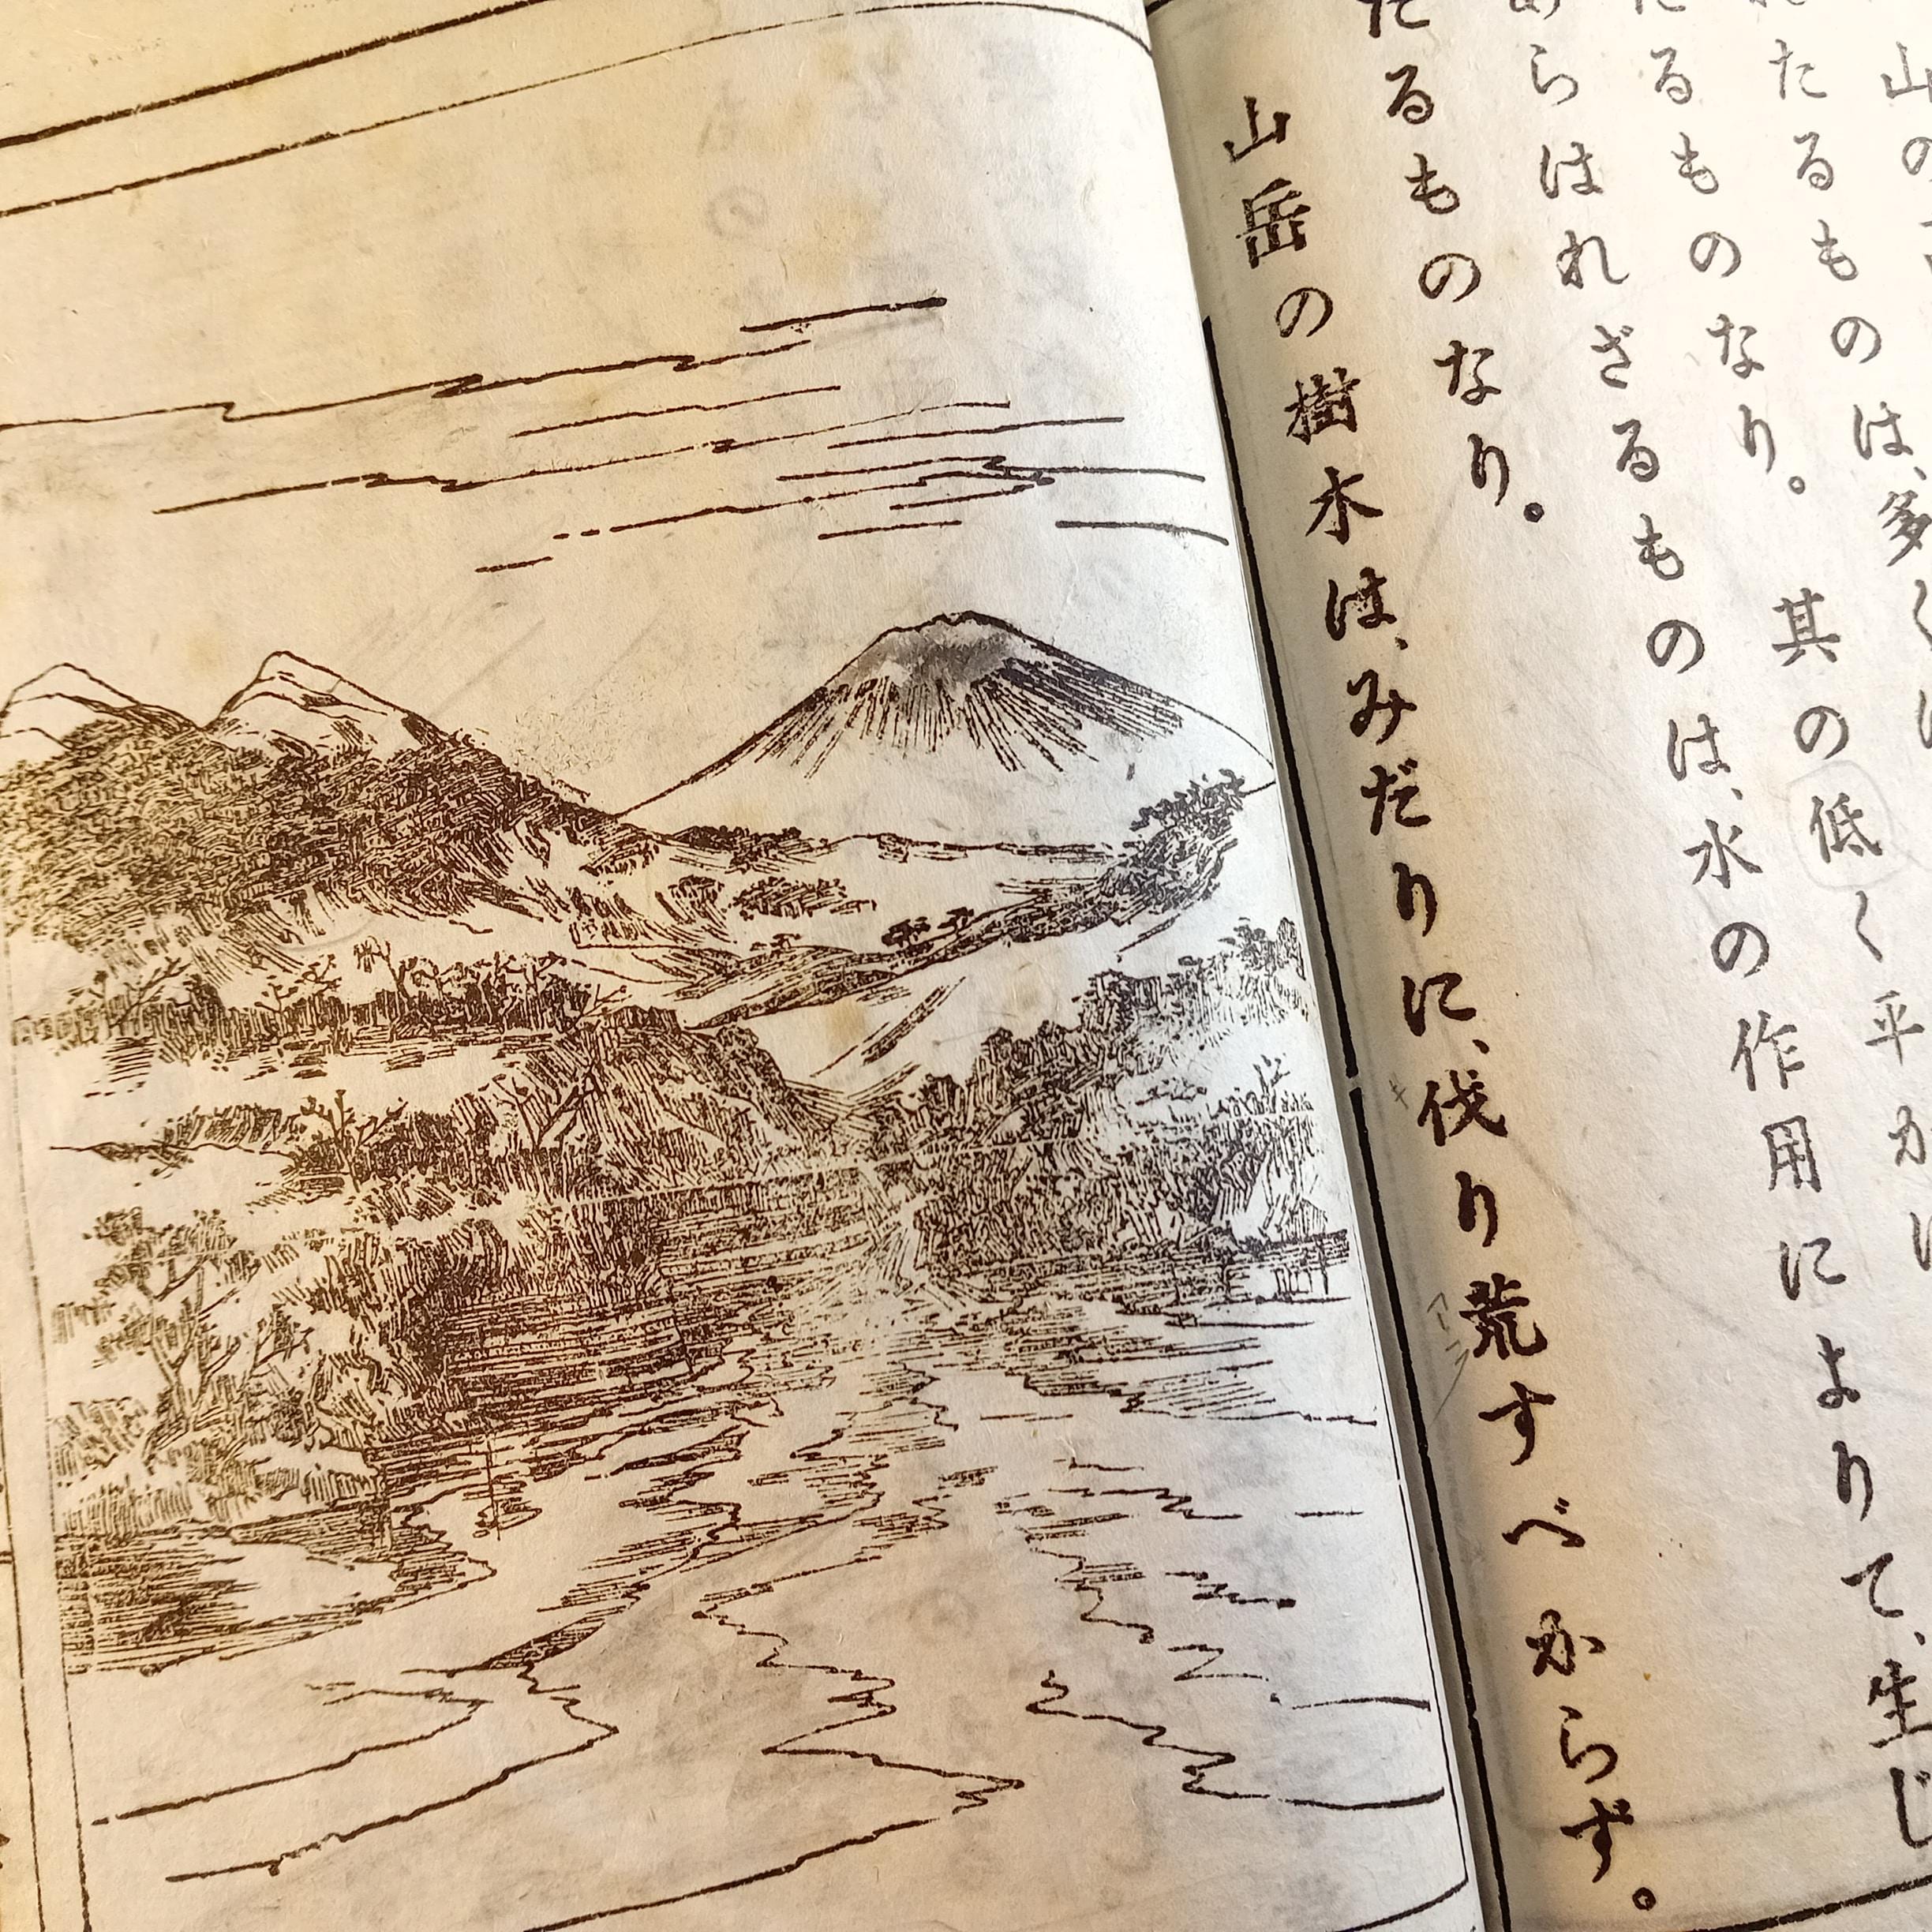 山の
たるものは、多く
たるものなり。其の低く平かに
あらはれざるものは、水の作用によりて、生じ
たるものなり。
山岳の樹木は、みだりに、伐り荒すべからず。
キ
アラ